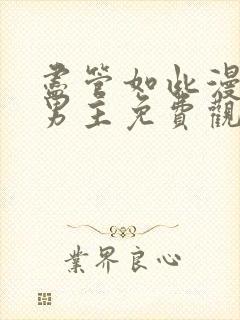 盡管如此漫
男主免費觀
業界良心